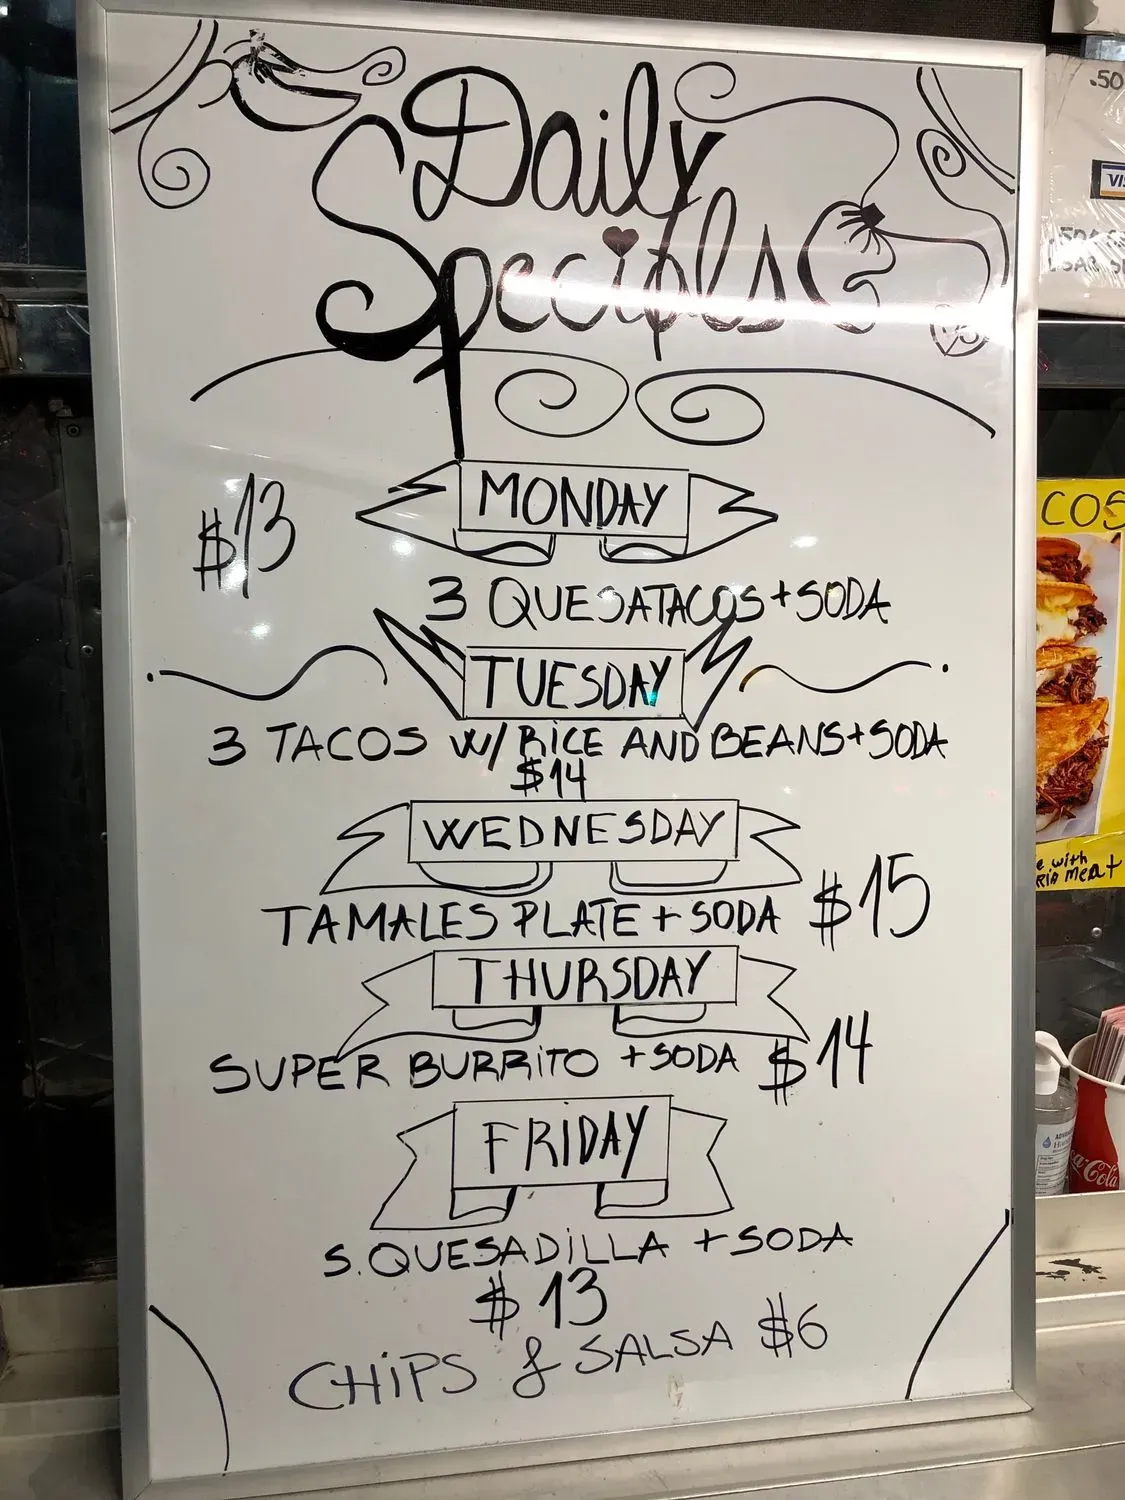 Daily
Specials
$13
MONDAY
3 QUESATACOS + SODA
TUESDAY
3 TACOS W/ RICE AND BEANS + SODA
$14
WEDNESDAY
TAMALES PLATE + SODA $15
THURSDAY
SUPER BURRITO + SODA $14
FRIDAY
S. QUESADILLA + SODA
$13
CHIPS & SALSA $6
.50
COS
with
meat